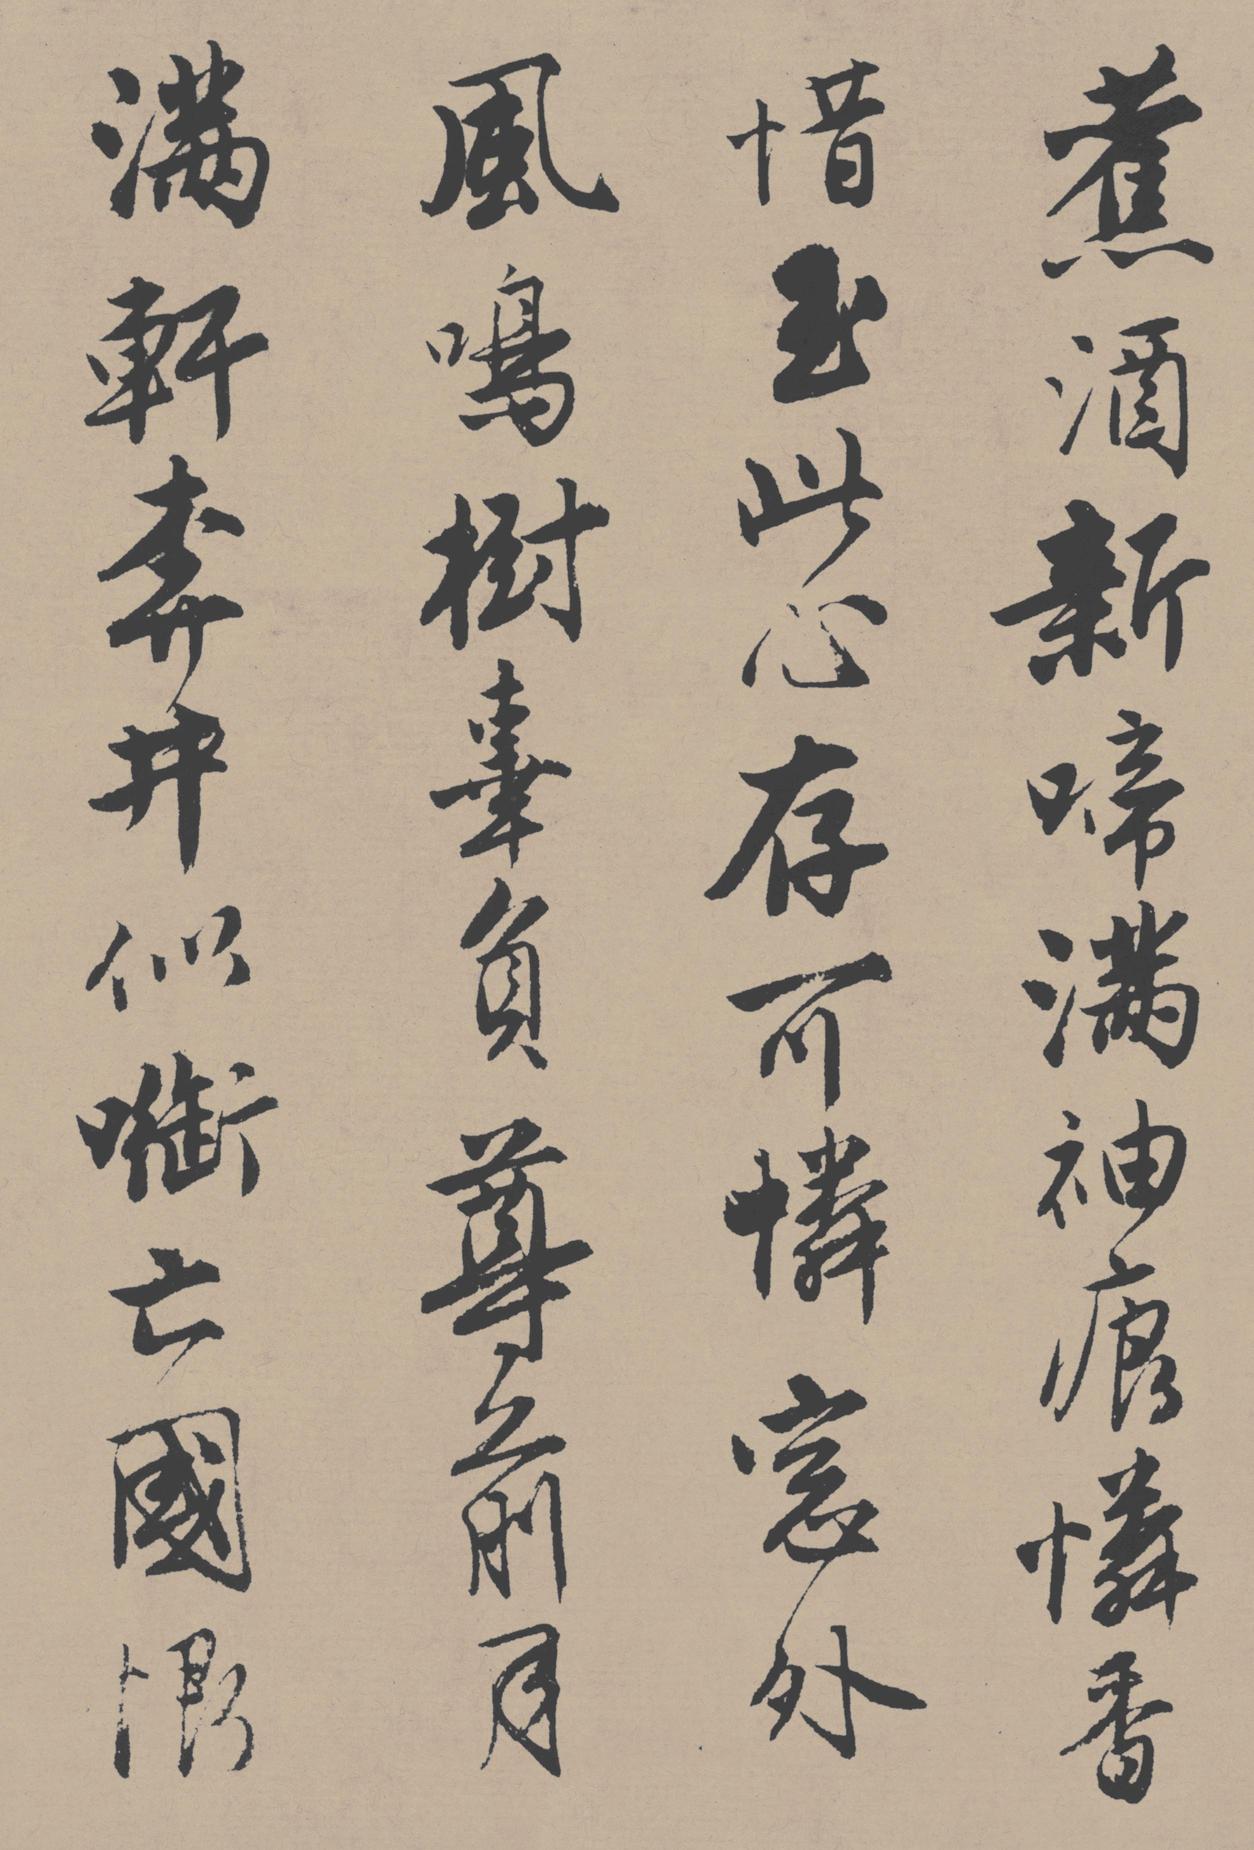 蕉酒新啼滿袖痕憐香
惜玉此心存可憐窓外
風鳴樹辜負尊前月
滿軒奔井似啣亡國恨